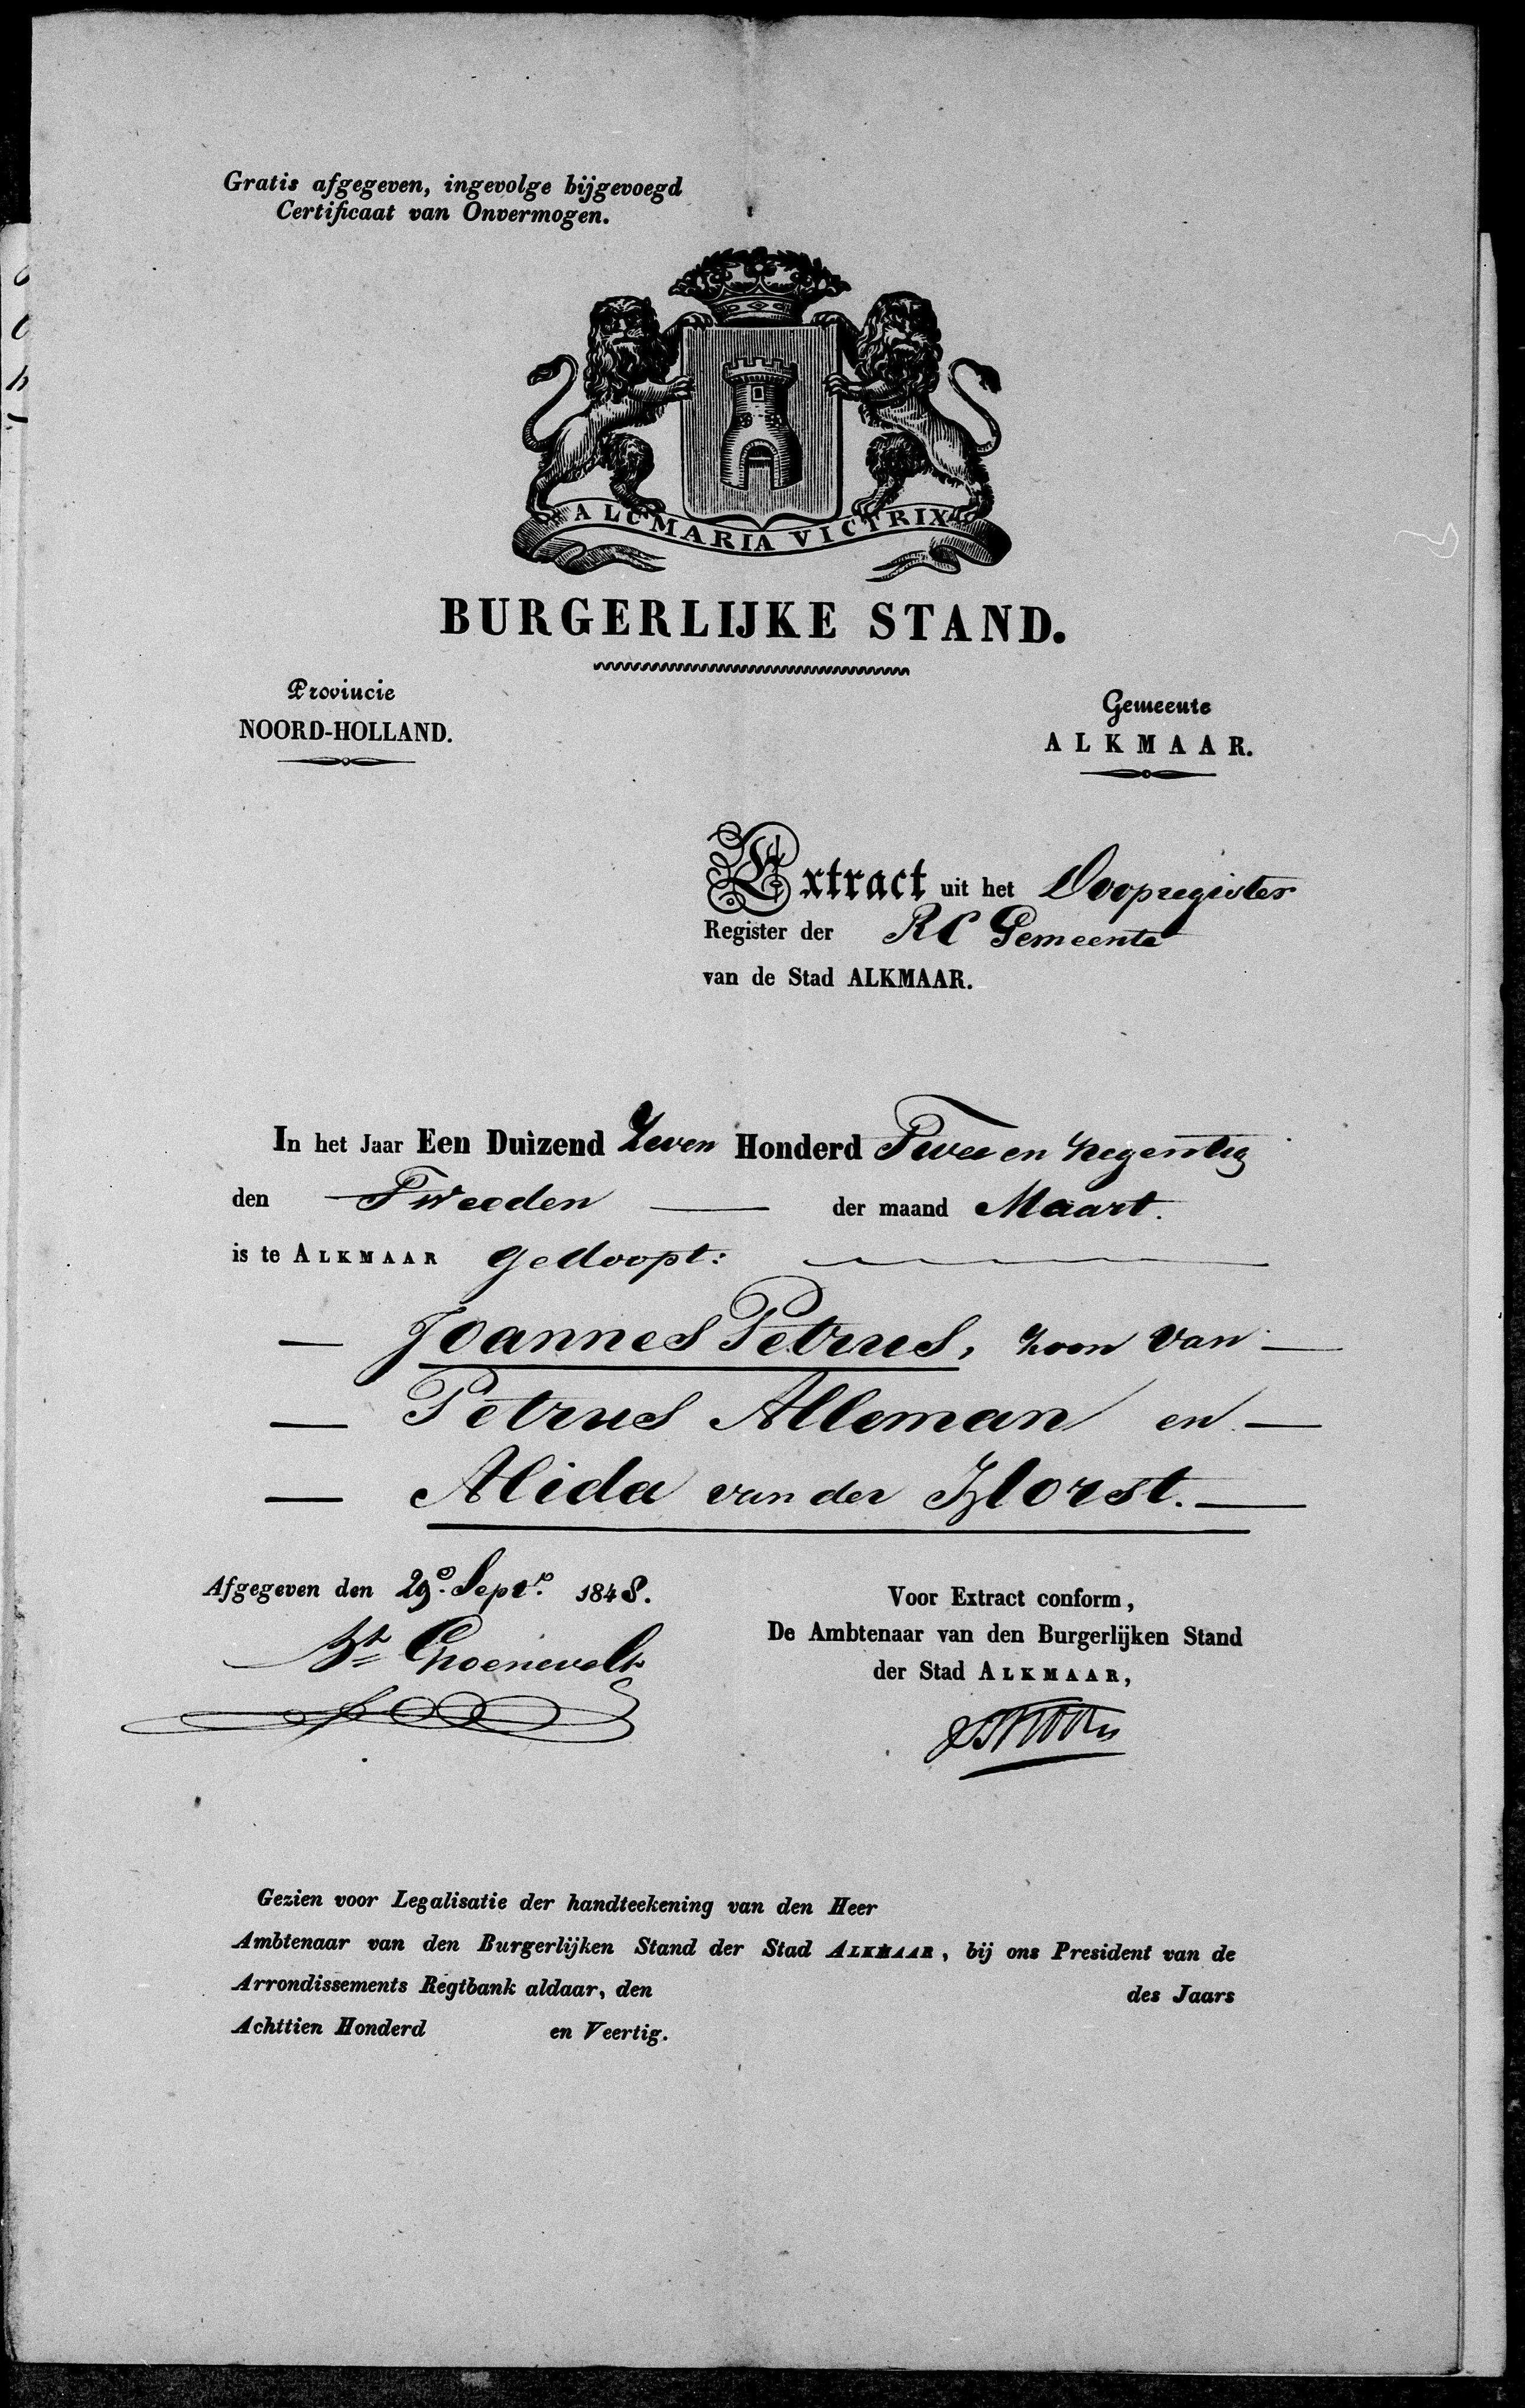 Gratis afgegeven, ingevolge bijgevoegd
Certificaat van Onvermogen.
ALCMARIA VICTRIX
BURGERLIJKE STAND.
Provincie
NOORD-HOLLAND.
Gemeente
ALKMAAR.
Extract uit het Doopregister
Register der RC Gemeente
van de Stad ALKMAAR.
In het Jaar Een Duizend Zeven Honderd Twee en Negentig
den Tweeden der maand Maart.
is te ALKMAAR gedoopt:
Joannes Petrus, zoon van
Petrus Alleman en
Alida van der Horst.
Afgegeven den 29e Septr. 1848.
Groenevelt
Voor Extract conform,
De Ambtenaar van den Burgerlijken Stand
der Stad ALKMAAR,
Gezien voor Legalisatie der handteekening van den Heer
Ambtenaar van den Burgerlijken Stand der Stad ALKMAAR, bij ons President van de
Arrondissements Regtbank aldaar, den des Jaars
Achttien Honderd en Veertig.